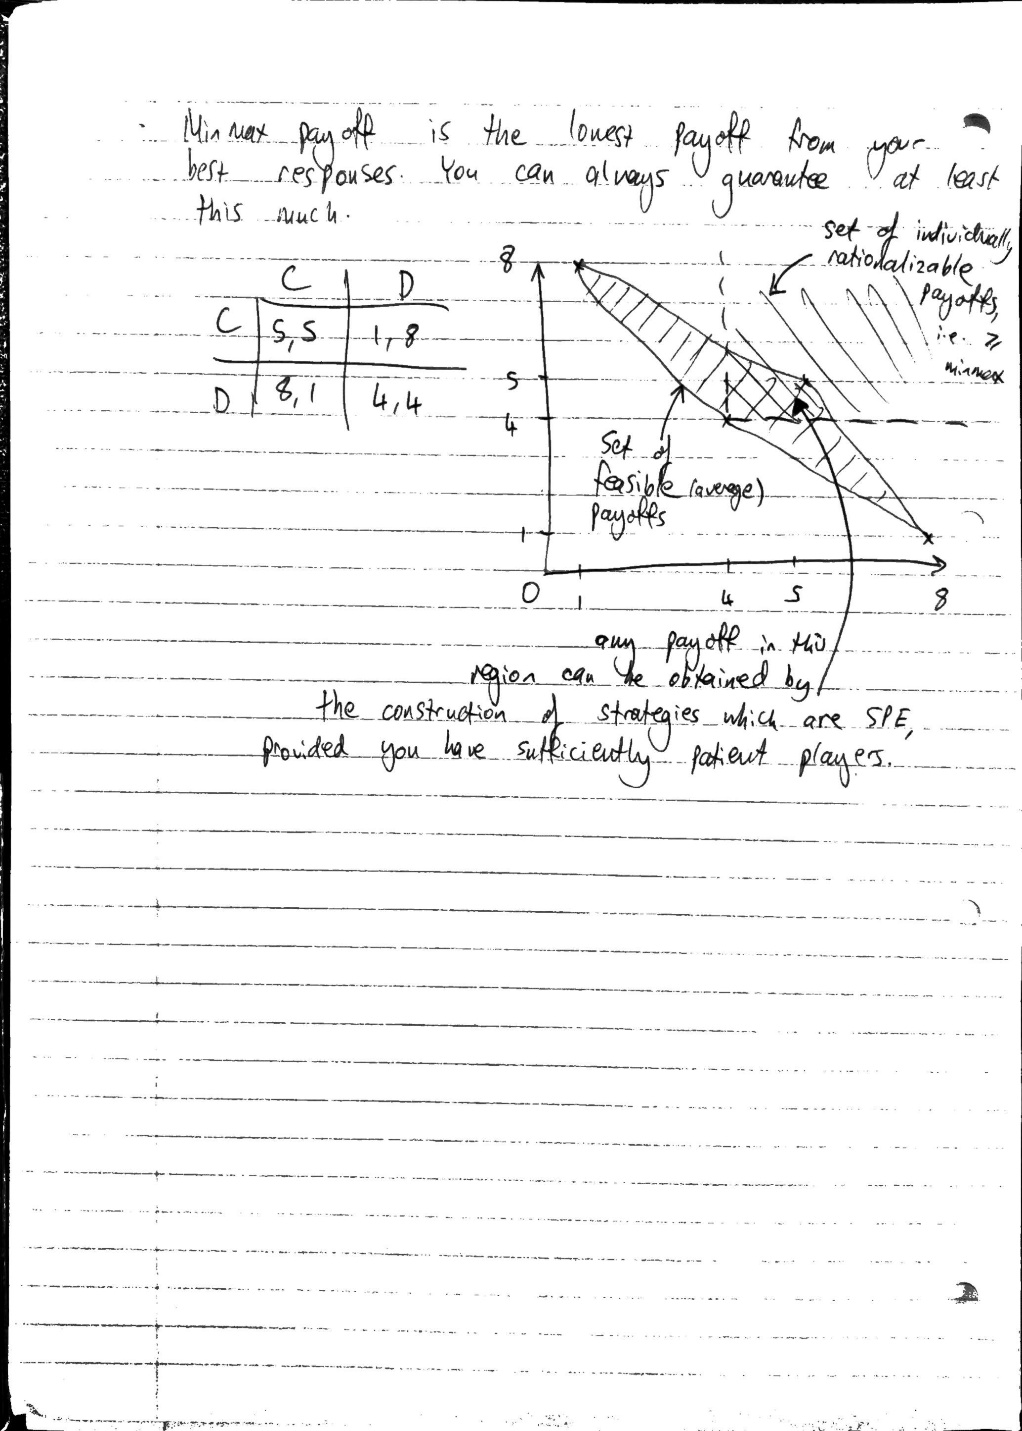 Min max payoff is the lowest payoff from your
best responses. You can always guarantee at least
this much.
C D
C 5,5 1,8
D 8,1 4,4
set of individually
rationalizable
payoffs,
i.e. ≥
minmax
8
5
4
1
0 1 4 5 8
Set of
feasible (average)
payoffs
any payoff in this
region can be obtained by
the construction of strategies which are SPE,
provided you have sufficiently patient players.